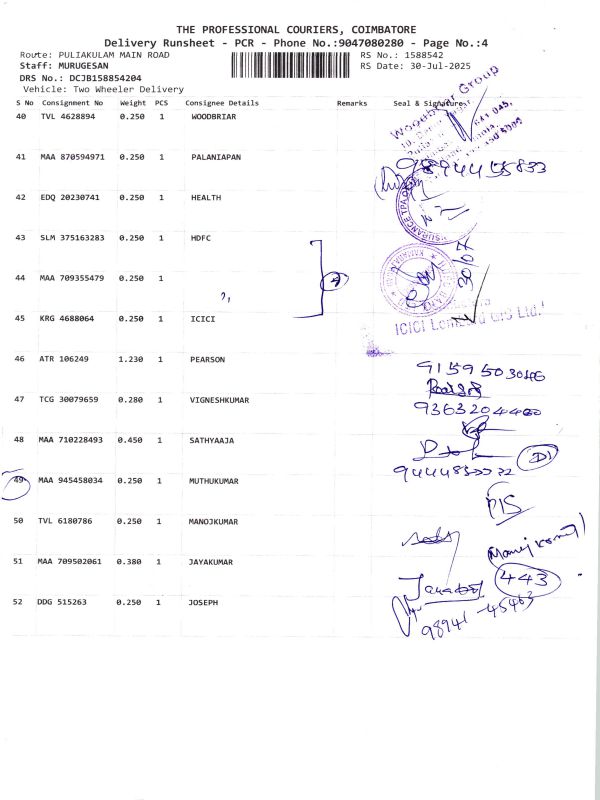 THE PROFESSIONAL COURIERS, COIMBATORE
Delivery Runsheet - PCR - Phone No.:9047080280 - Page No.:4
Route: PULIAKULAM MAIN ROAD
RS No.: 1588542
Staff: MURUGESAN
RS Date: 30-Jul-2025
DRS No.: DCJB158854204
Vehicle: Two Wheeler Delivery
S No Consignment No Weight PCS Consignee Details Remarks Seal & Signature
40 TVL 4628894 0.250 1 WOODBRIAR
Woodbriar Group
41 MAA 870594971 0.250 1 PALANIAPAN
42 EDQ 20230741 0.250 1 HEALTH
43 SLM 375163283 0.250 1 HDFC
44 MAA 709355479 0.250 1
45 KRG 4688064 0.250 1 ICICI
ICICI Lombard GIC Ltd.
46 ATR 106249 1.230 1 PEARSON
47 TCG 30079659 0.280 1 VIGNESHKUMAR
9363204460
48 MAA 710228493 0.450 1 SATHYAAJA
D1
49 MAA 945458034 0.250 1 MUTHUKUMAR
P/S
50 TVL 6180786 0.250 1 MANOJKUMAR
51 MAA 709502061 0.380 1 JAYAKUMAR
443
52 DDG 515263 0.250 1 JOSEPH
98941-45463